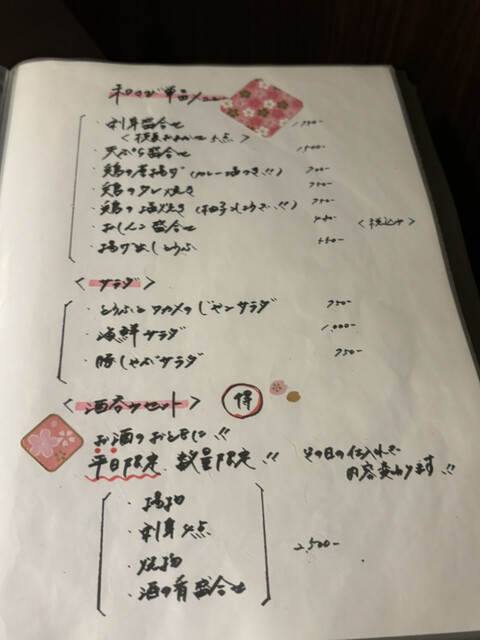 単品メニュー
・刺身盛合せ
・天ぷら盛合せ 1,500-
・鶏の唐揚げ (カレー塩つき!!) 750-
・鶏のタレ焼き 750-
・鶏の塩焼き (柚子こしょうで!!) 750-
・おしんこ盛合せ <税込み>
・揚げ出しとうふ
<サラダ>
・とうふとワカメのじゃこサラダ 750-
・海鮮サラダ 1,000-
・豚しゃぶサラダ 750-
<酒呑みセット> 得
お酒のおともに!!
平日限定 数量限定!! その日の仕入れで
内容変わります!!
・揚物
・刺身
・焼物
・酒の肴盛合せ
2,500-